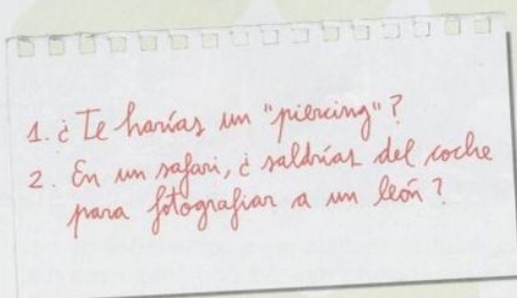 1. ¿Te harías un "piercing"?
2. En un safari, ¿saldrías del coche
para fotografiar a un león?